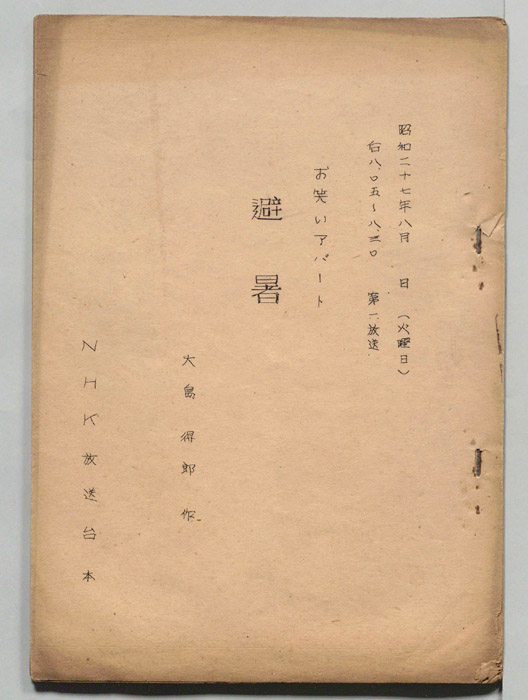 昭和二十七年八月 日(火曜日)
后八.〇五~八.三〇 第一放送
お笑いアパート
避暑
大島得郎作
NHK放送台本